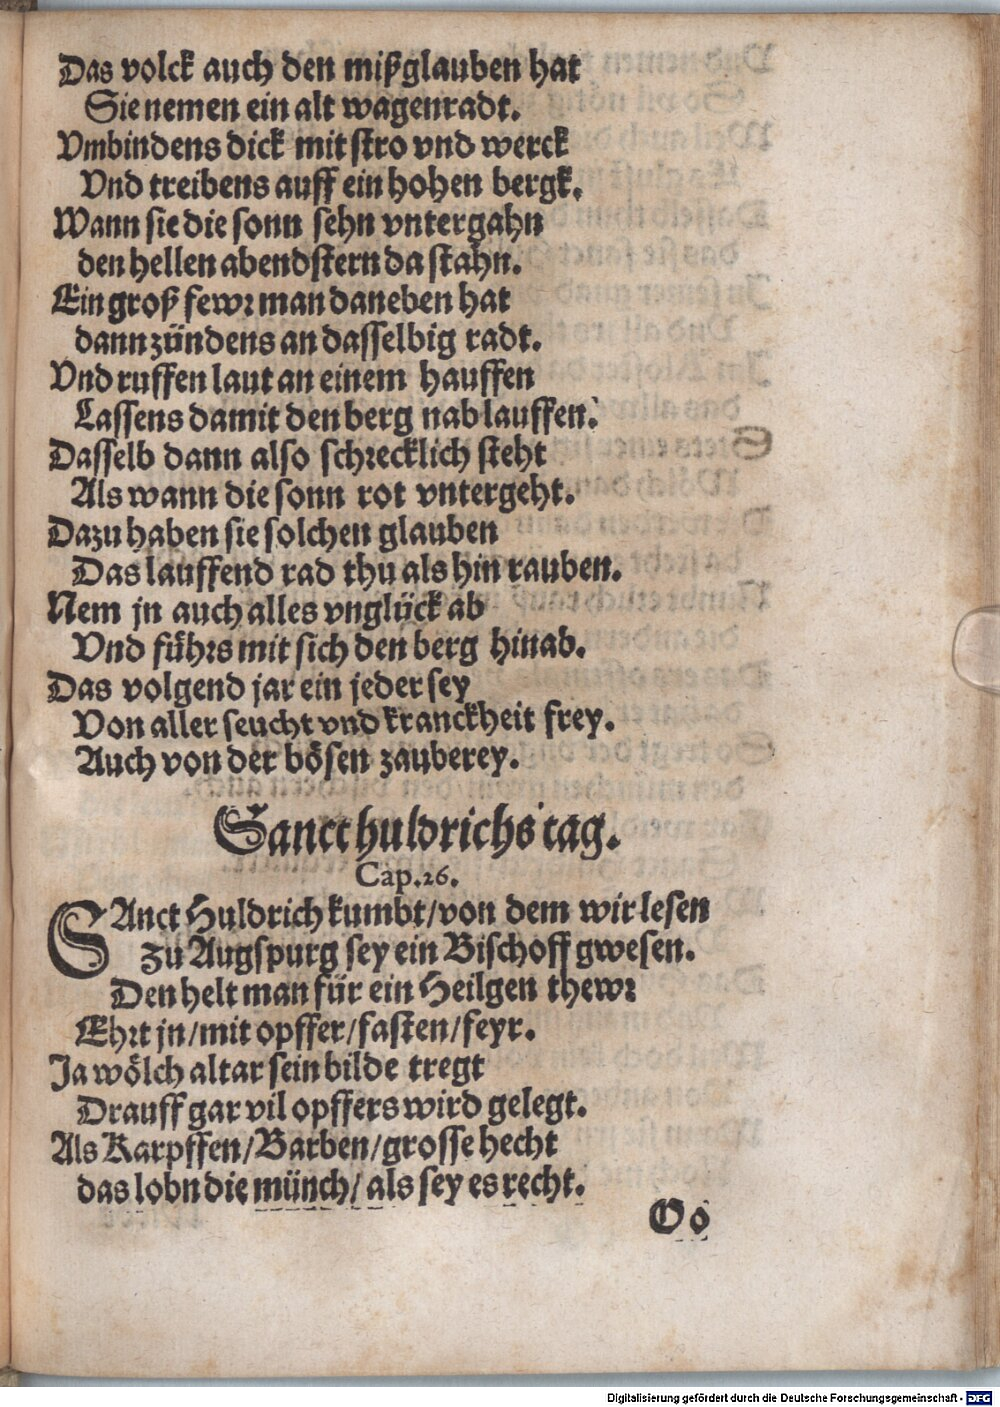 Das volck auch den mißglauben hat
Sie nemen ein alt wagenradt.
Vmbindens dick mit stro vnd werck
Vnd treibens auff ein hohen bergk.
Wann sie die sonn sehn vntergahn
den hellen abendstern da stahn.
Ein groß fewr man daneben hat
dann zündens an dasselbig radt.
Vnd ruffen laut an einem hauffen
Lassens damit den berg nab lauffen.
Dasselb dann also schrecklich steht
Als wann die sonn rot vntergeht.
Dazu haben sie solchen glauben
Das lauffend rad thu als hin rauben.
Nem jn auch alles vnglück ab
Vnd führs mit sich den berg hinab.
Das volgend jar ein jeder sey
Von aller seucht vnd kranckheit frey.
Auch von der bösen zauberey.
Sanct huldrichs tag.
Cap.26.
SAnct Huldrich kumbt/von dem wir lesen
zu Augspurg sey ein Bischoff gwesen.
Den helt man für ein Heilgen thewr
Ehrt jn/mit opffer/fasten/feyr.
Ja wölch altar sein bilde tregt
Drauff gar vil opffers wird gelegt.
Als Karpffen/Barben/grosse hecht
das lobn die münch/als sey es recht.
Oo
Digitalisierung gefördert durch die Deutsche Forschungsgemeinschaft - DFG